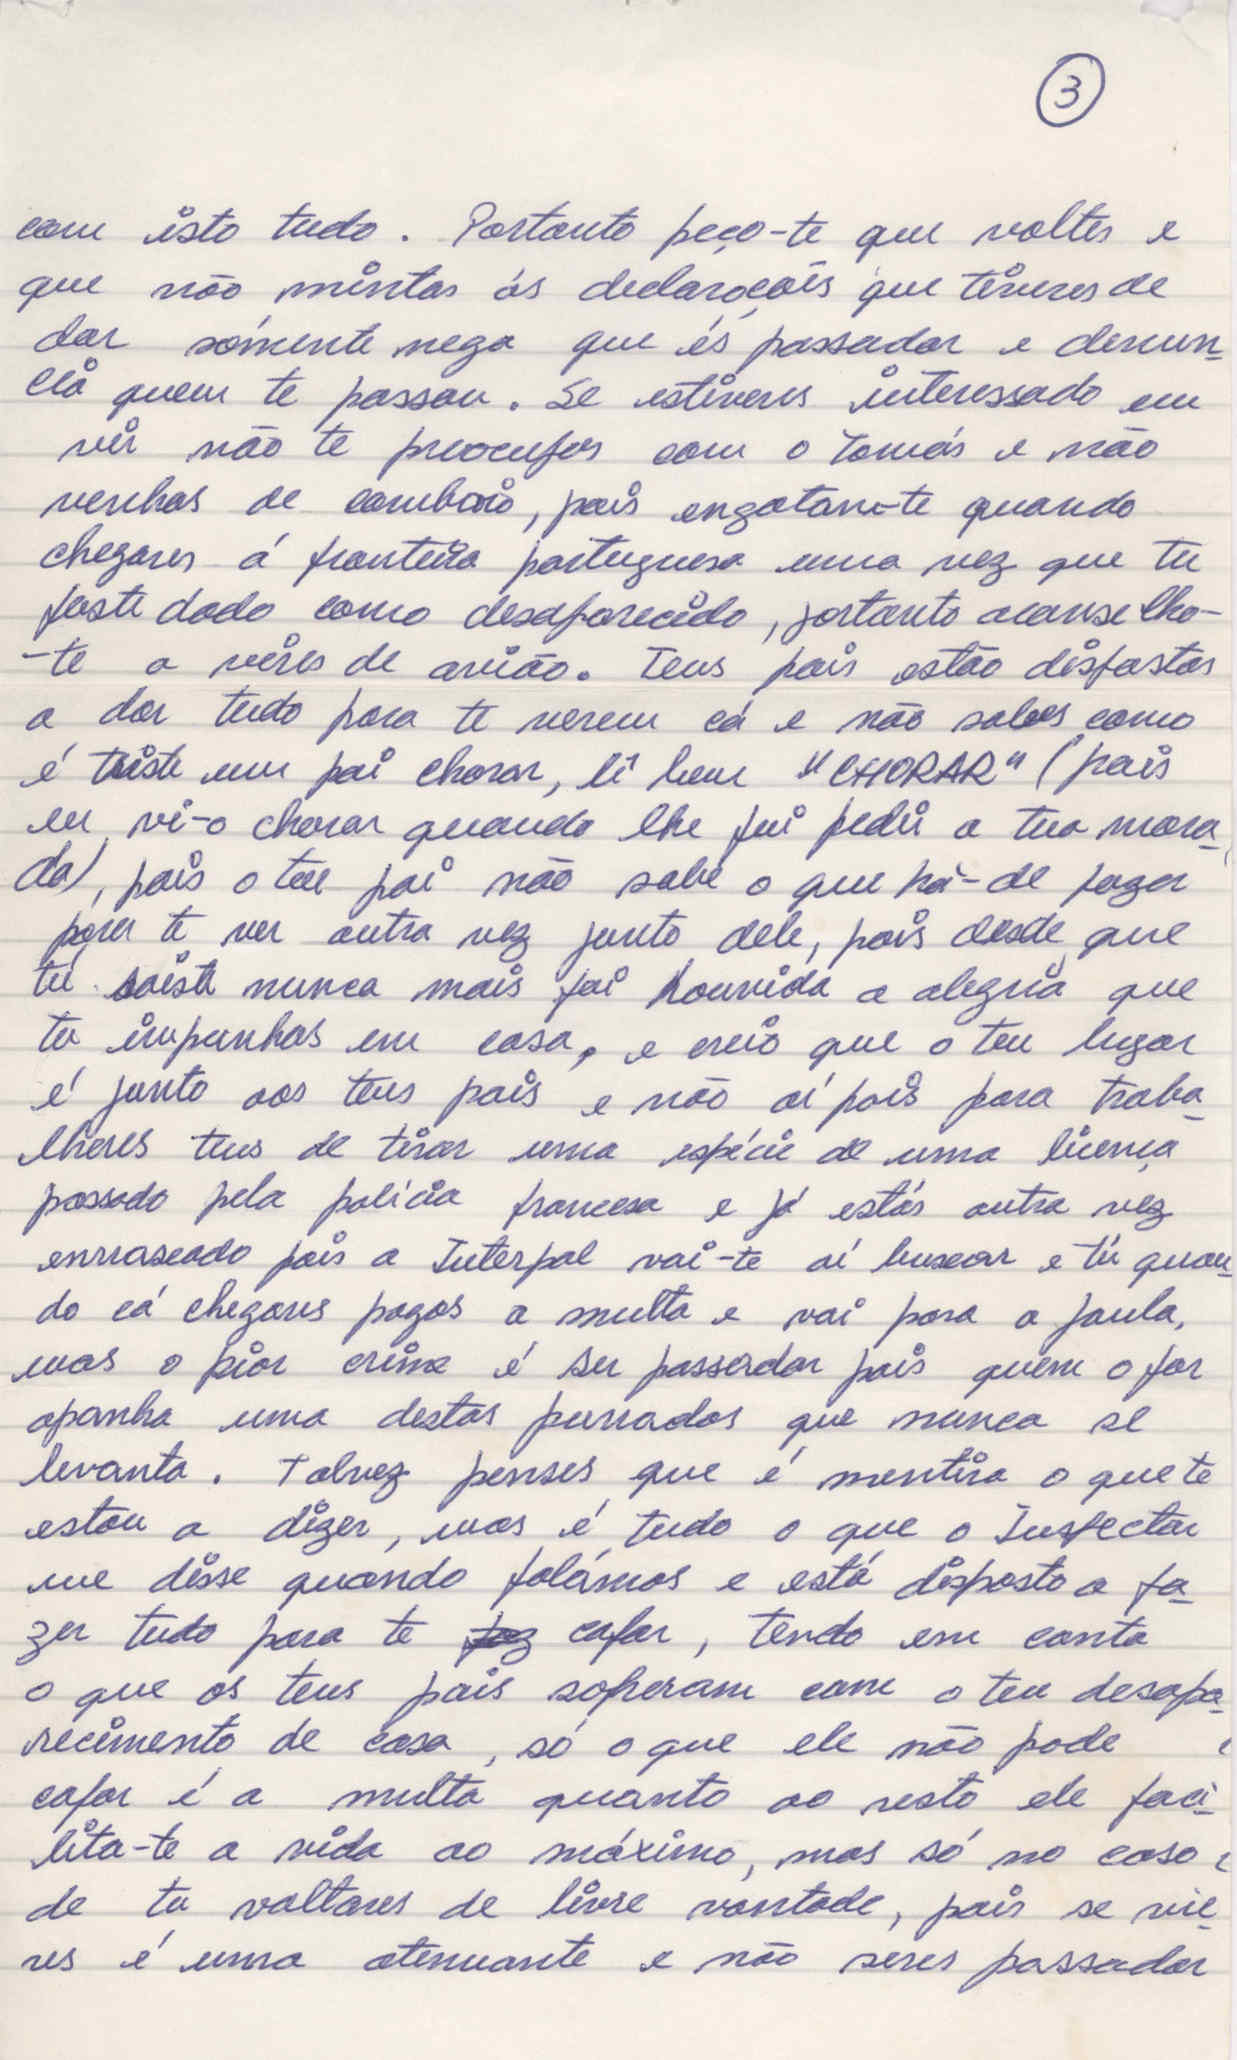 3
com isto tudo. Portanto peço-te que voltes e
que não mintas ás declaraçoẽs que tiveres de
dar sómente nega que és passador e denun-
cia quem te passou. Se estiveres interessado em
vir não te preocupes com o Tomás e não
venhas de comboio, pois engatam-te quando
chegares á fronteira portuguesa uma vez que tu
foste dado como desaparecido, portanto aconselho-
-te a vires de avião. Teus pais estão dispostos
a dar tudo para te verem cá e não sabes como
é triste um pai chorar, lê bem "CHORAR" (pois
eu vi-o chorar quando lhe fui pedir a tua mora-
da), pois o teu pai não sabe o que há-de fazer
para te ver outra vez junto dele, pois desde que
tú saiste nunca mais foi houvida a alegria que
tu impunhas em casa, e creio que o teu lugar
é junto aos teus pais e não aí pois para traba-
lheres teus de tirar uma espécie de uma licença
passado pela policia francesa e já estás outra vez
enrrascado pois a Interpol vai-te aí buscar e tú quan-
do cá chegares pagas a multa e vai para a jaula,
mas o pior crime é ser passador pois quem o for
apanha uma destas purradas que nunca se
levanta. Talvez penses que é mentira o que te
estou a dizer, mas é tudo o que o Inspector
me disse quando falámos e está disposto a fa-
zer tudo para te safar, tendo em conta
o que os teus pais sofreram com o teu desapa-
recimento de casa, só o que ele não pode
safar é a multa quanto ao resto ele faci-
lita-te a vida ao máximo, mas só no caso
de tu voltares de livre vontade, pois se vie-
res é uma atenuante e não seres passador